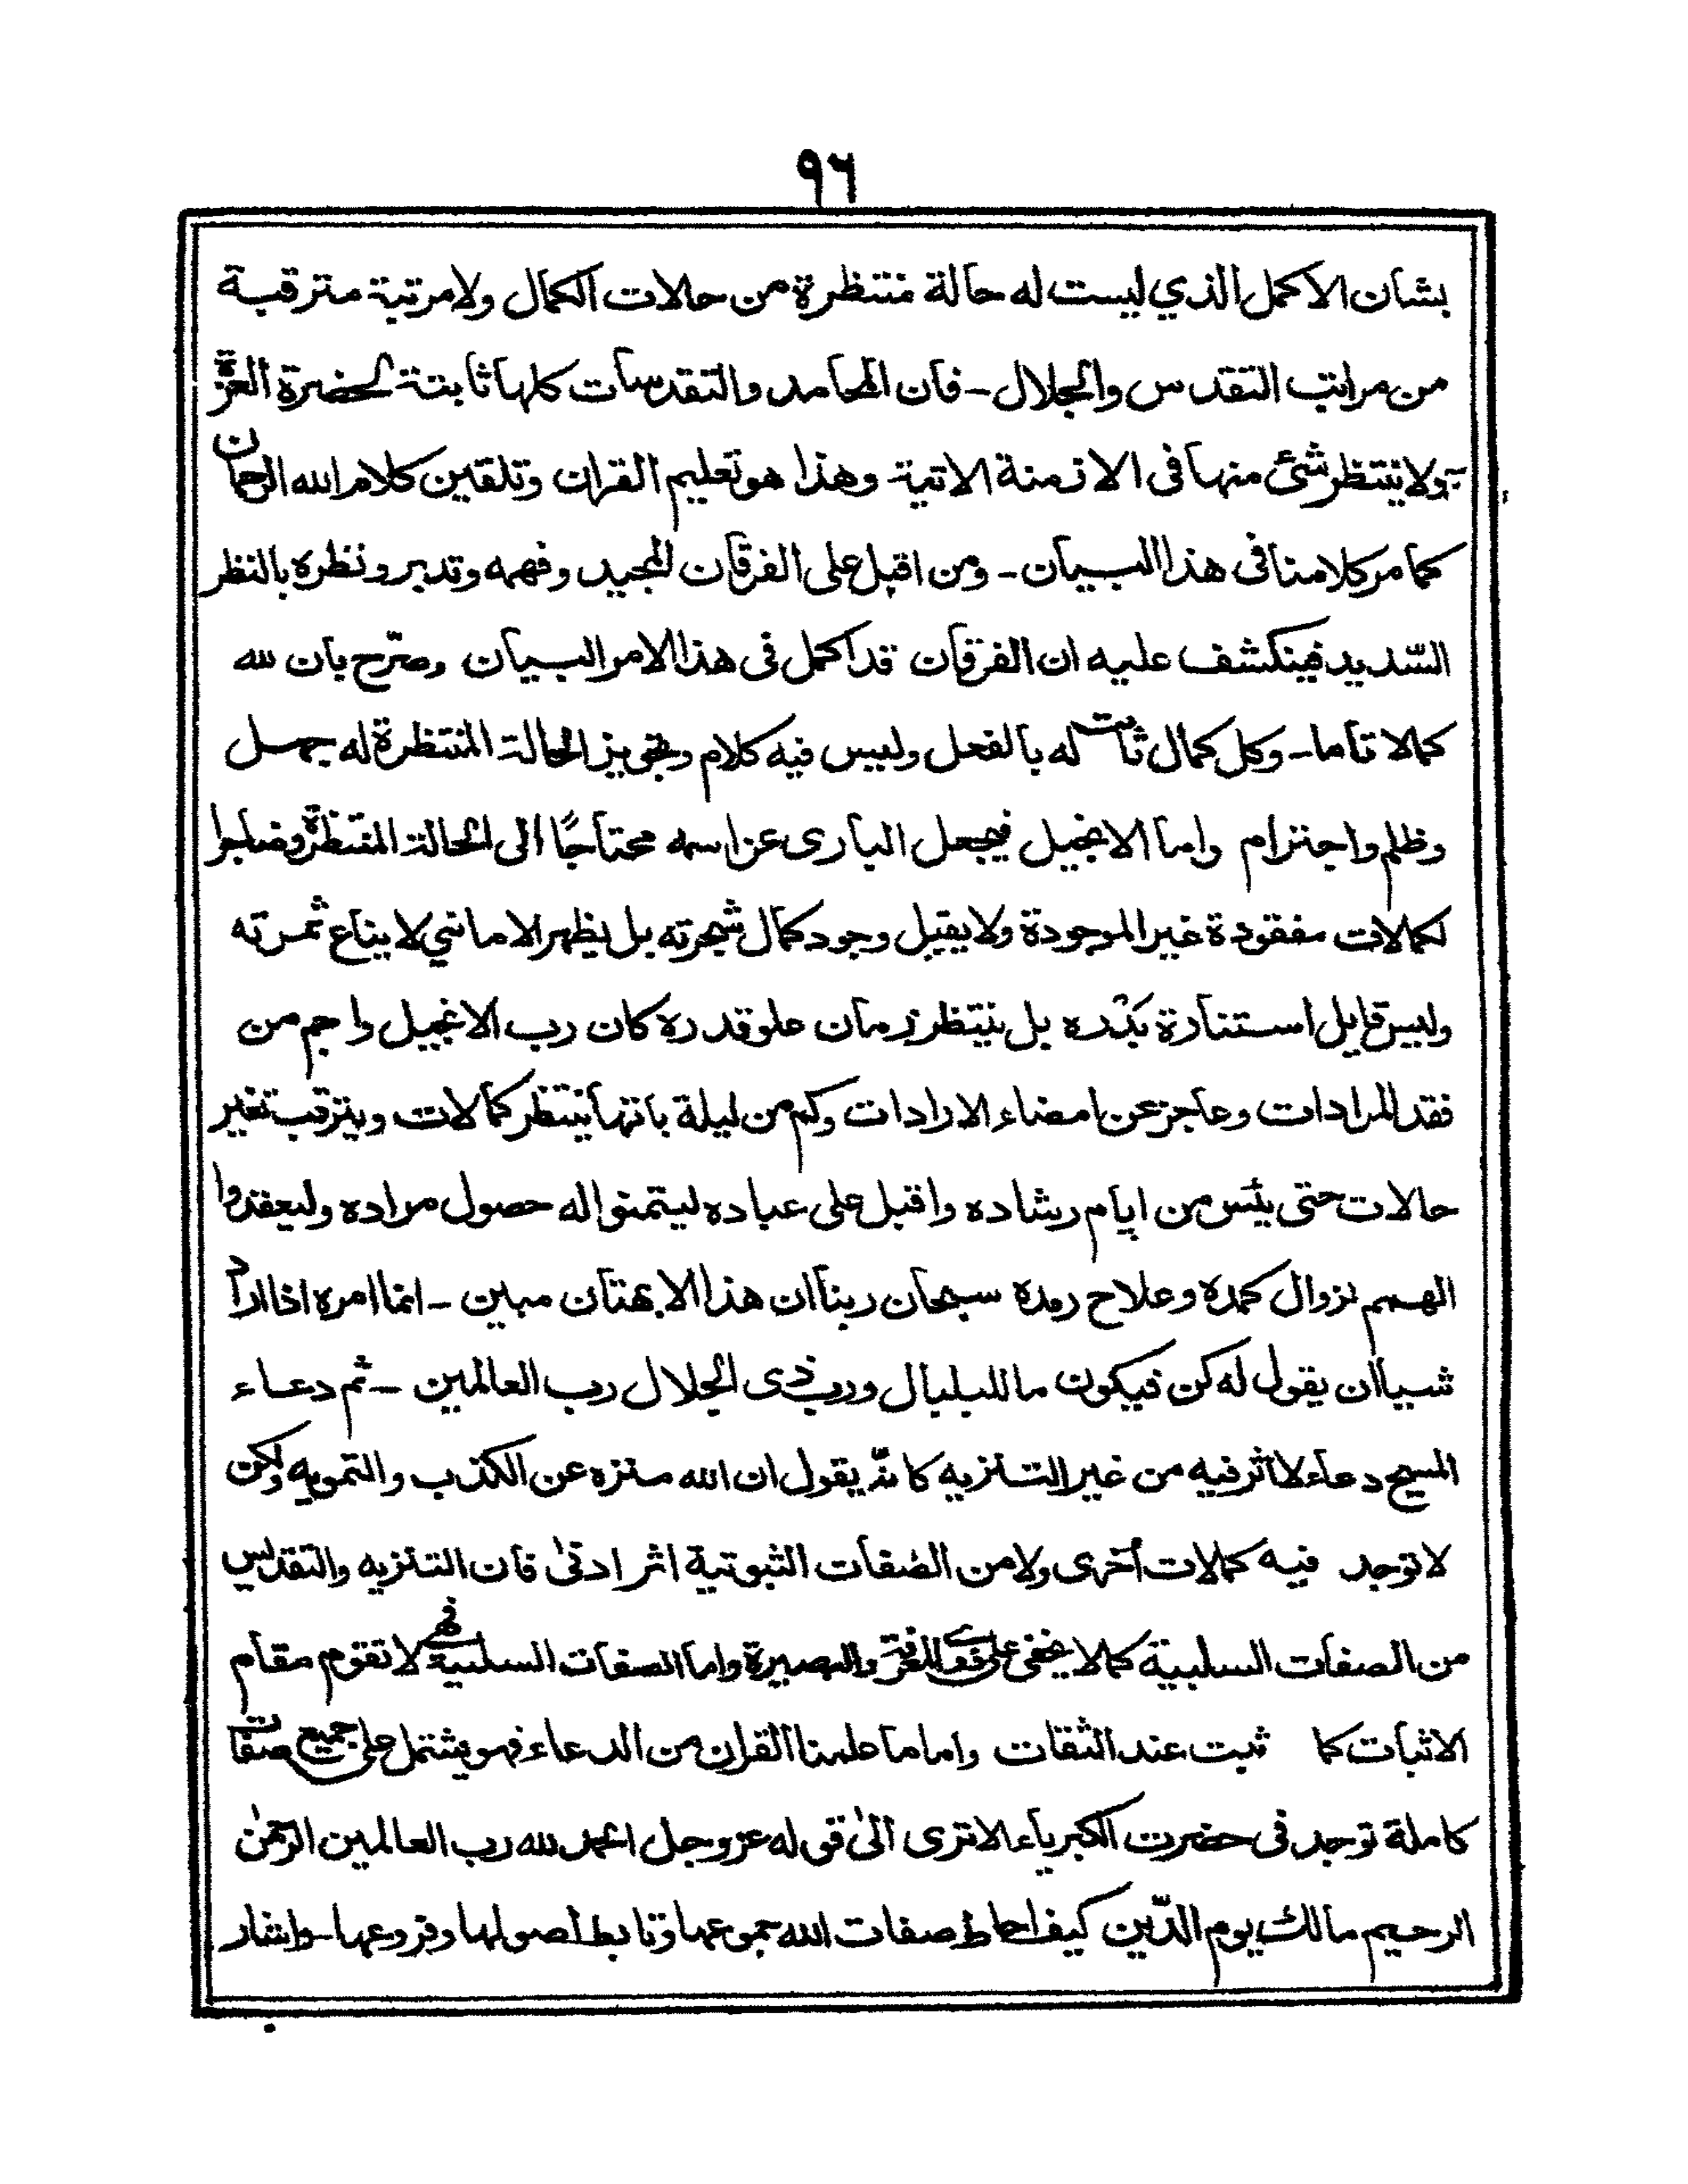 ٩٦
بشان الاكمل الذي ليست له حالة منتظرة من حالات الكمال ولا مرتبة مترقبة
من مراتب التقدس والجلال - فان المحامد والتقدسات كلها ثابتة لحضرة العزّة
ولا ينتظر شئ منها في الازمنة الاتية وهذا هو تعليم القران وتلقين كلام الله الرحمان
كما مر كلامنا في هذا البيان - ومن اقبل على الفرقان المجيد وفهمه وتدبر ونظره بالنظر
السّديد فينكشف عليه ان الفرقان قد اكمل في هذا الامر البيان وصرّح بان لله
كمالا تاما - وكل كمال ثابت له بالفعل وليس فيه كلام وتجويز الحالة المنتظرة له جهل
وظلم واجترام واما الانجيل فيجعل البارى عز اسمه محتاجًا الى الحالة المنتظرة وضاجرا
لكمالات مفقودة غير الموجودة ولا يقبل وجود كمال شجرته بل يظهر الاماني لايناع ثمرته
وليس قايل استنارة بدره بل ينتظر زمان علو قدره كان رب الانجيل واجم من
فقد المرادات وعاجز عن امضاء الارادات وكم من ليلة باتها ينتظر كمالات ويترقب تغير
حالات حتى يئس من ايام رشاده واقبل على عباده ليتمنوا له حصول مراده وليعقدوا
الهمم لزوال كمده وعلاح رمده سبحان ربنا ان هذا الا بهتان مبين - انما امره اذا اراد
شيا ان يقول له كن فيكون ما للبلبال ورب ذى الجلال رب العالمين - ثم دعاء
المسيح دعاء لا اثر فيه من غير التنزيه كانّه يقول ان الله منزه عن الكذب والتمويه ولكن
لا توجد فيه كمالات أخرى ولا من الصفات الثبوتية اثر ادنى فان التنزيه والتقديس
من الصفات السلبية كما لا يخفى على ذوى المعرفة والبصيرة واما الصفات السلبية فهى لا تقوم مقام
الاثبات كما ثبت عند الثقات واما ما علمنا القران من الدعاء فهو يشتمل على جميع صفات
كاملة توجد في حضرت الكبرياء الا ترى الىٰ قوله عز وجل الحمد لله رب العالمين الرحمٰن
الرحيم مالك يوم الدّين كيف احاط صفات الله جموعها وتابط اصولها وفروعها - واشار